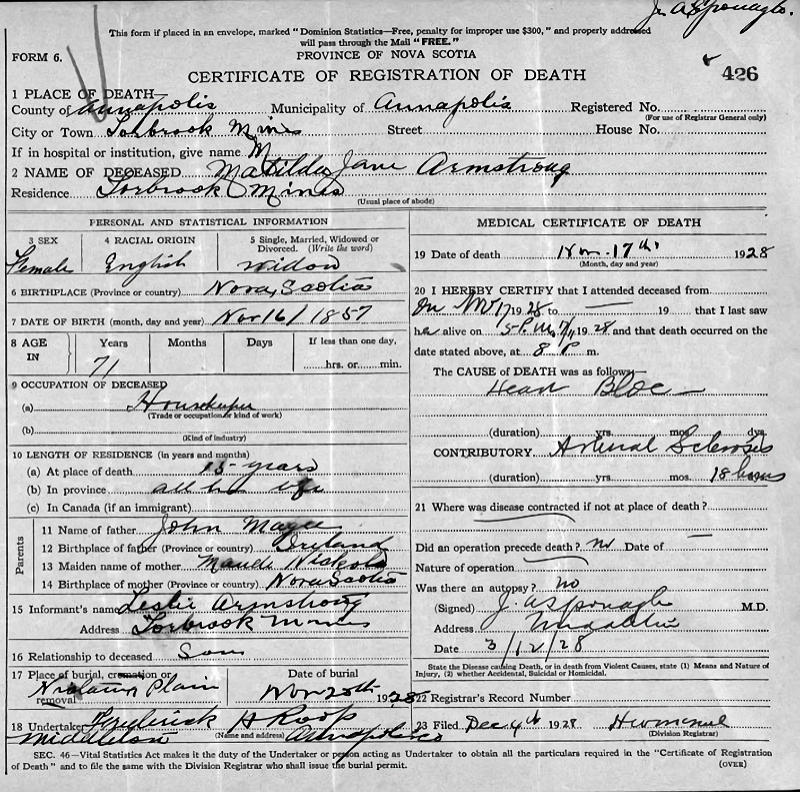 J. A. Sponagle.
This form if placed in an envelope, marked "Dominion Statistics—Free, penalty for improper use $300," and properly addressed
will pass through the Mail "FREE."
FORM 6.
PROVINCE OF NOVA SCOTIA
CERTIFICATE OF REGISTRATION OF DEATH
426
1 PLACE OF DEATH
County of Annapolis Municipality of Annapolis Registered No.
(For use of Registrar General only)
City or Town Torbrook Mines Street House No.
If in hospital or institution, give name
2 NAME OF DECEASED Matilda Jane Armstrong
Residence Torbrook Mines
(Usual place of abode)
PERSONAL AND STATISTICAL INFORMATION
3 SEX 4 RACIAL ORIGIN 5 Single, Married, Widowed or
Divorced. (Write the word)
Female English Widow
6 BIRTHPLACE (Province or country) Nova Scotia
7 DATE OF BIRTH (month, day and year) Nov 16/1857
8 AGE IN Years Months Days If less than one day,
71 hrs. or min.
9 OCCUPATION OF DECEASED
(a) Housekeeper
(Trade or occupation or kind of work)
(b)
(Kind of industry)
10 LENGTH OF RESIDENCE (in years and months)
(a) At place of death 15 years
(b) In province all her life
(c) In Canada (if an immigrant)
Parents
11 Name of father John Magee
12 Birthplace of father (Province or country) Ireland
13 Maiden name of mother Maude Nickols
14 Birthplace of mother (Province or country) Nova Scotia
15 Informant's name Leslie Armstrong
Address Torbrook Mines
16 Relationship to deceased Son
17 Place of burial, cremation or removal Date of burial
Plain Nov 20th 1928
18 Undertaker Frederick H Roop
(Name and address)
Middleton Annapolis Co
MEDICAL CERTIFICATE OF DEATH
19 Date of death Nov. 17th 1928
(Month, day and year)
20 I HEREBY CERTIFY that I attended deceased from
On Nov 17 1928 to — 19 that I last saw
her alive on 5 P.M. 17/11 1928 and that death occurred on
date stated above, at 8 P. m.
The CAUSE of DEATH was as follows
Heart Bloc
(duration) yrs. mos. dys.
CONTRIBUTORY Arterial Sclerosis
(duration) yrs. mos. 18 hours
21 Where was disease contracted if not at place of death?
Did an operation precede death? no Date of —
Nature of operation
Was there an autopsy? no
(Signed) J. A. Sponagle M.D.
Address Middleton
Date 3/12/28
State the Disease causing Death, or in death from Violent Causes, state (1) Means and Nature of
Injury, (2) whether Accidental, Suicidal or Homicidal.
22 Registrar's Record Number
23 Filed Dec 4th 1928
(Division Registrar)
SEC. 46—Vital Statistics Act makes it the duty of the Undertaker or person acting as Undertaker to obtain all the particulars required in the "Certificate of Registration
of Death" and to file the same with the Division Registrar who shall issue the burial permit.
(OVER)